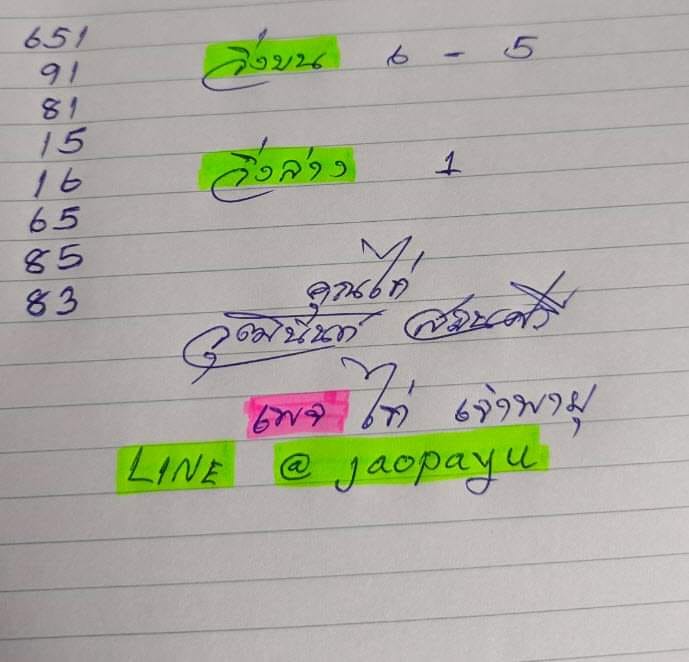 651
91
81
15
16
65
85
83
วิ่งบน 6 - 5
วิ่งล่าง 1
คุณไก่
วุฒินันท์
เพจ ไก่ เจ้าพายุ
LINE @ jaopayu